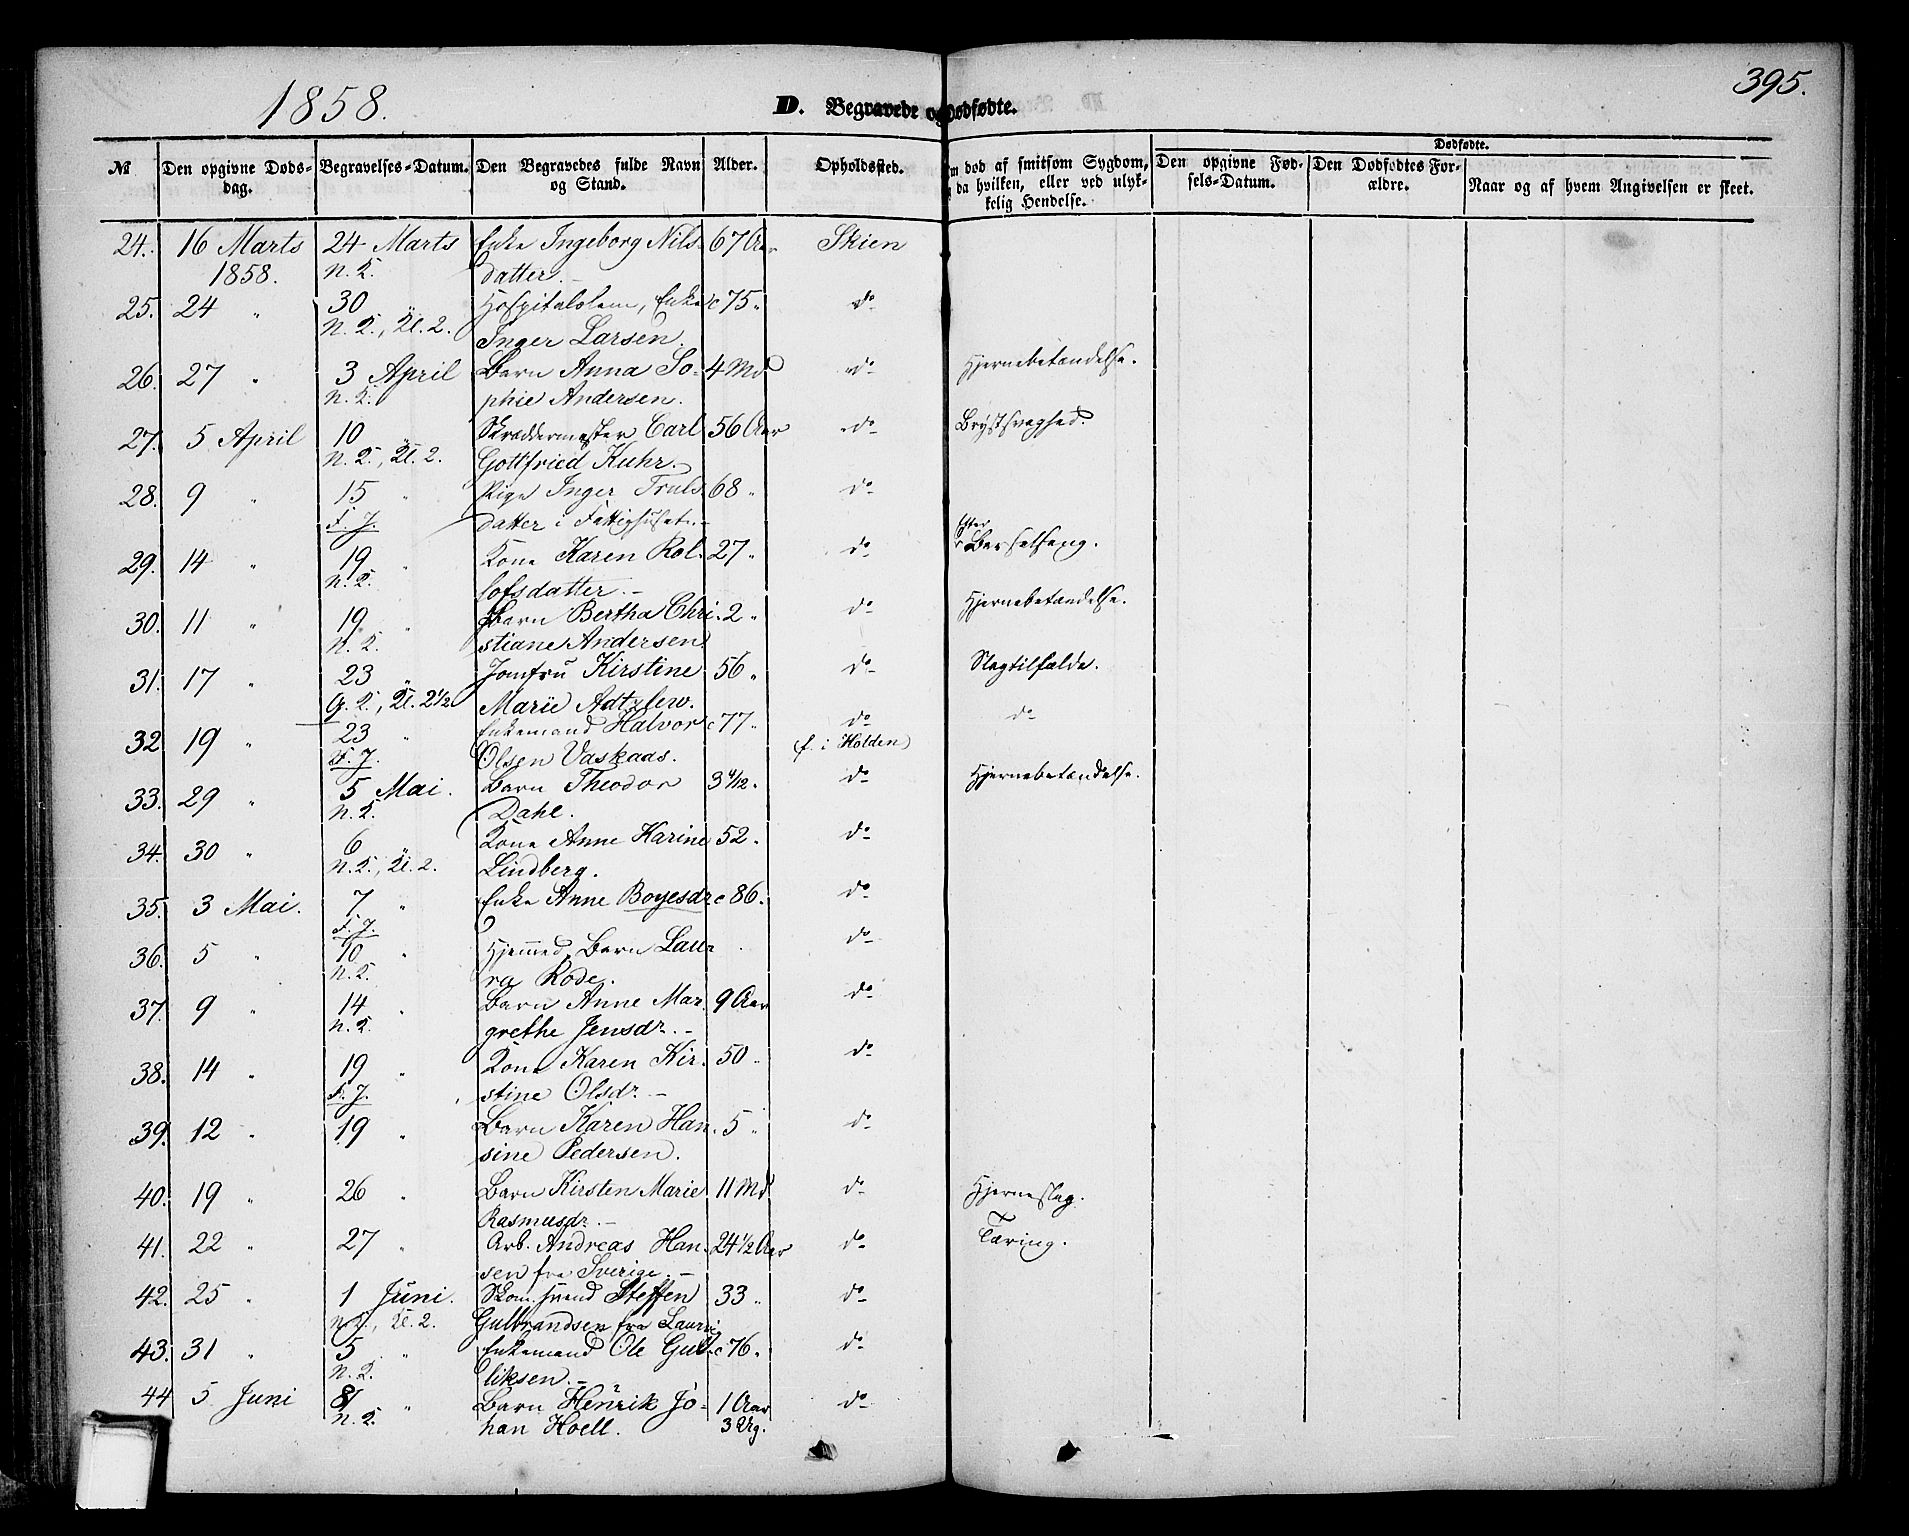 1858.
D. Begravede og Dødfødte.
395.
№ Den opgivne Døds-dag. Begravelses-Datum. Den Begravedes fulde Navn og Stand. Alder. Opholdssted. Om død af smitsom Sygdom, og da hvilken, eller ved ulykkelig Hendelse. Dødfødte. Den opgivne Fødsels-Datum. Den Dødfødtes Forældre. Naar og af hvem Angivelsen er skeet.
24. 16 Marts 24 Marts Enke Ingeborg Nils- 67 Aar Skien
1858. N. K. datter. –
25. 24 " 30 " Hospitalslem, Enke c 75 " do
N. K., Kl. 2. Inger Larsen.
26. 27 " 3 April Barn Anna So- 4 Md do Hjernebetændelse.
N. K. phie Andersen.
27. 5 April 10 " Skræddermester Carl 56 Aar do Brystsvaghed.
N. K., Kl. 2. Gottfried Kuhr. –
28. 9 " 15 " Pige Inger Truls- 68 " do
F. J. datter i Fattighuset. –
29. 14 " 19 " Kone Karen Rol- 27 " do Efter Barselseng.
N. K. lofsdatter. –
30. 11 " 19 " Barn Bertha Chri- 2 " do Hjernebetændelse.
N. K. stiane Andersen.
31. 17 " 23 " Jomfru Kirstine 56 " do Slagtilfælde.
G. K., Kl. 2 1/2 Marie Adtzlew.
32 19 " 23 " Enkemand Halvor c 77 " do do
F. J. Olsen Vaskaas. (f. i Holden)
33. 29 " 5 Mai. Barn Theodor 3 4/12 " do Hjernebetændelse.
N. K. Dahl.
34. 30 " 6 " Kone Anne Karine 52 " do
N. K., Kl. 2. Lindberg.
35. 3 Mai. 7 " Enke Anne Boyesdr c 86 " do
F. J.
36. 5 " 10 " Hjemmed. Barn Lau- " do
N. K. ra Rode.
37. 9 " 14 " Barn Anne Mar- 9 Aar do
N. K. grethe Jensdr. –
38. 14 " 19 " Kone Karen Kir- 50 " do
F. J. stine Olsdr. –
39. 12 " 19 " Barn Karen Han- 5 " do
sine Pedersen.
40. 19 " 26 " Barn Kirsten Marie 11 Md do Hjerneslag.
Rasmusdr. –
41. 22 " 27 " Arb. Andreas Han- 24 1/2 Aar do Tæring.
sen fra Sverige. –
42. 25 " 1 Juni. Skom.svend Steffen 33 " do
N. K., Kl. 2. Gulbrandsen fra Laurv.
43. 31 " 5 " Enkemand Ole Gul- c 76 " do
N. K. liksen. –
44 5 Juni 8 " Barn Henrik Jo- 1 Aar do
N. K. han Hoell. 3 Ug.